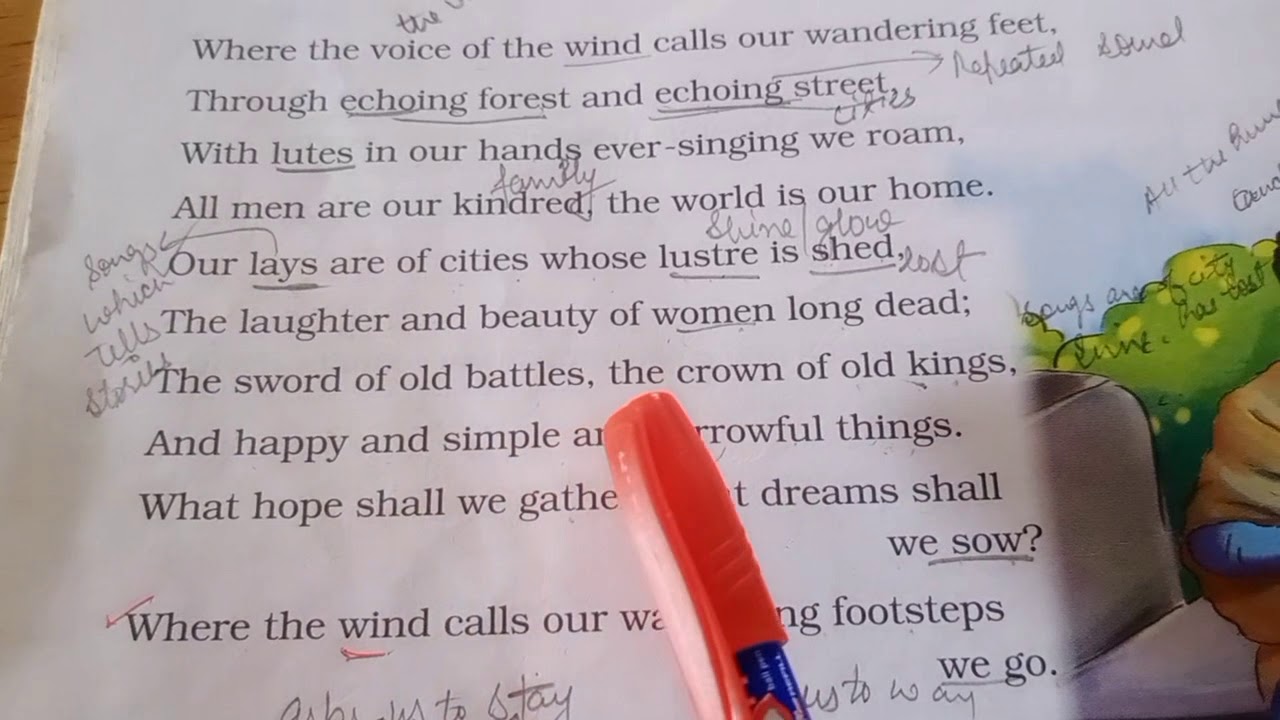 the
Where the voice of the wind calls our wandering feet,
Repeated Sound
Through echoing forest and echoing street,
cities
With lutes in our hands ever-singing we roam,
family
All men are our kindred, the world is our home.
All the
Shine/glow
Songs which tells stories
Our lays are of cities whose lustre is shed,
lost
The laughter and beauty of women long dead;
Songs are of city has lost
The sword of old battles, the crown of old kings,
And happy and simple and sorrowful things.
What hope shall we gather what dreams shall
we sow?
Where the wind calls our wandering footsteps
we go.
to stay
us to way